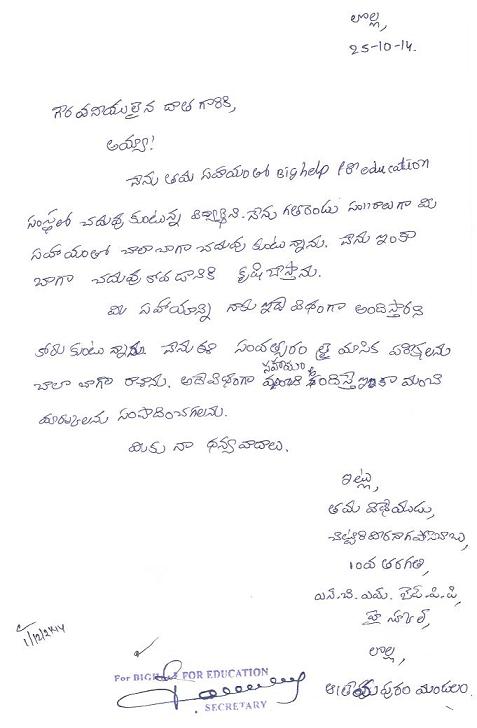 లొల్ల,
25-10-14.
గౌరవనీయులైన దాత గారికి,
అయ్యా!
నేను తమ సహాయంతో Big help for education
సంస్థలో చదువు కుంటున్న విద్యార్థిని. నేను గతరెండు సం॥రాలుగా మీ
సహాయంతో చాలా బాగా చదువు కుంటున్నాను. నేను ఇంకా
బాగా చదువు కోవడానికి కృషి చేస్తాను.
మీ సహాయాన్ని నాకు ఇదే విధంగా అందిస్తారని
కోరు కుంటున్నాను. నేను ఈ సంవత్సరం త్రైమాసిక పరీక్షలను
చాలా బాగా రాశాను. అదేవిధంగా సహాయం అందిస్తే ఇంకా మంచి
మార్కులను సంపాదించగలను.
మీకు నా ధన్యవాదాలు.
ఇట్లు,
తమ విధేయుడు,
10వ తరగతి,
ఎస్.బి.ఎమ్. జెడ్.పి.పి,
హై స్కూల్,
లొల్ల,
ఆత్రేయపురం మండలం.
1/12/2014
For BIG FOR EDUCATION
SECRETARY